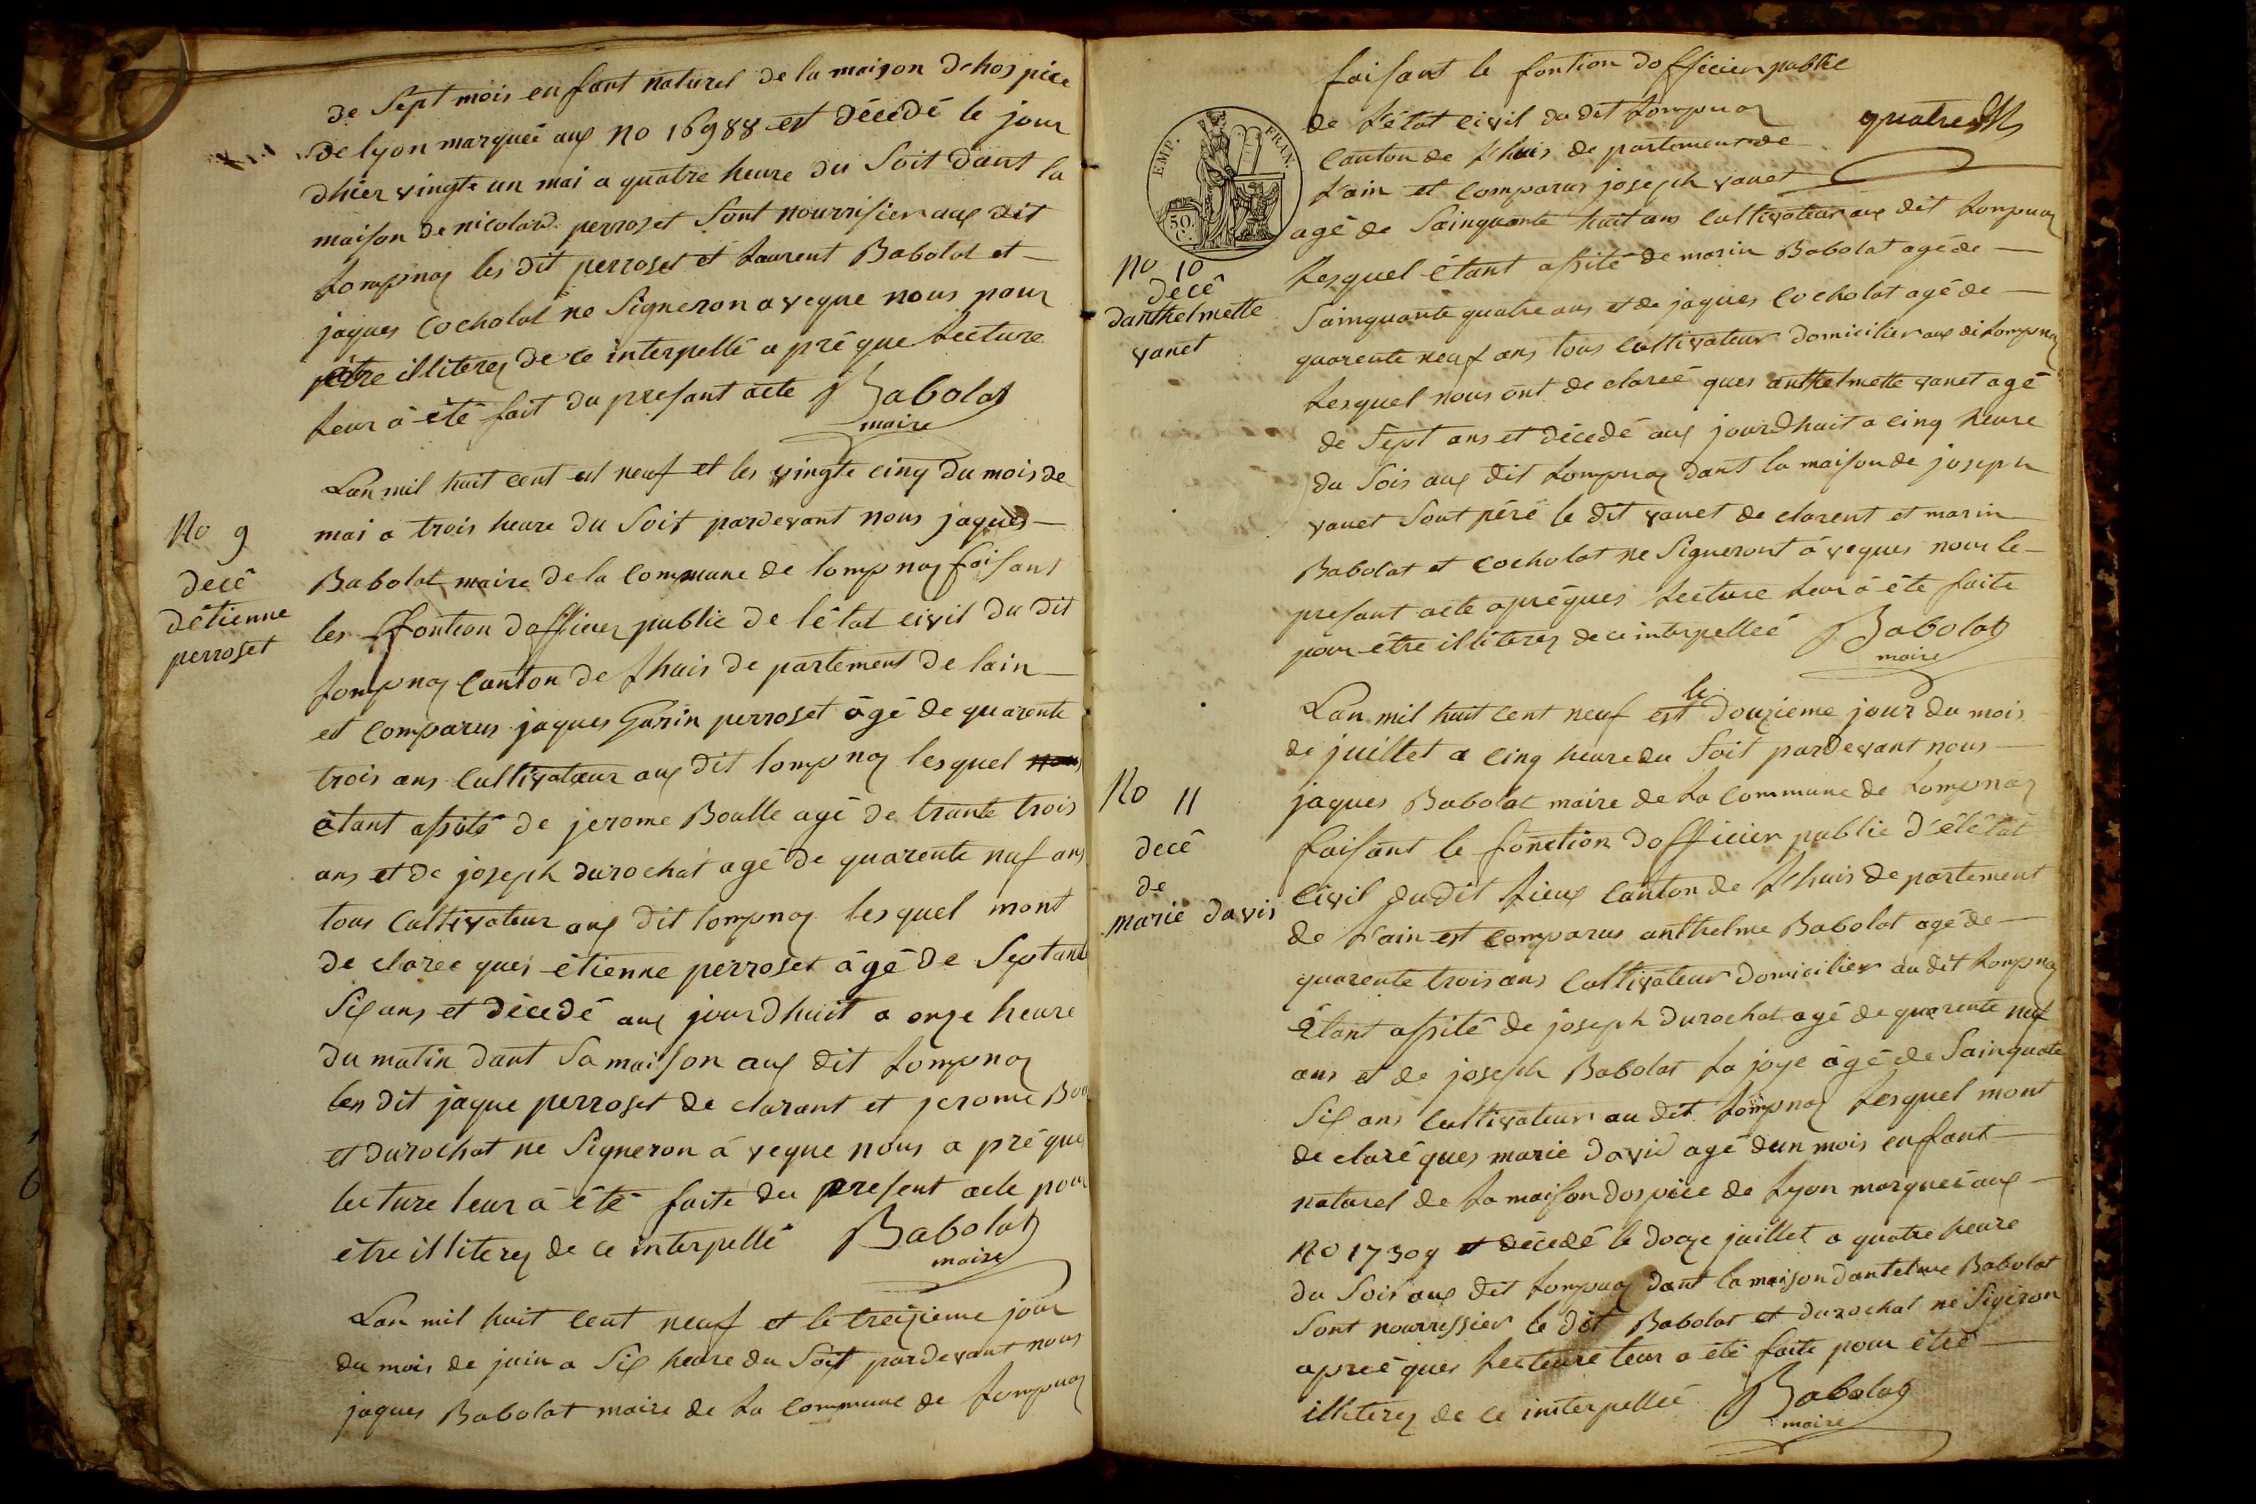 de Sept mois enfant naturel de la maison dehospice
de lyon marqueé aux no 16988 est décedé le jour
dhier vingte un mai a quatre heure du Soit dant la
maison de nicolard perroset Sont nourrisier aux dit
Lompnaz les dit perroset et Laurent Babolat et
jaques Cocholat ne Signeron a veque nous pour
être illiterez de ce interpellé a pré que Lecture
Leur à été fait du presant acte Babolat
maire
Lan mil huit cent est neuf et les vingte cinq du mois de
No 9
decê
détienne
perroset
mai a trois heure du Soit pardevant nous jaques
Babolat maire de la Commune de lompnaz faisant
les ffontion dofficier public de létat civil du dit
Lompnaz Canton de Lhuis de partement de lain
et Comparus jaques Garin perroset âgé de quarente
trois ans Cultivateur aux dit lompnaz lesquel nous
étant assité de jerome Boalle agé de trante trois
ans et de joseph durochat agé de quarente neuf ans
tous Cultivateur aux dit lompnaz lesquel mont
de claree ques étienne perroset âgé de Septante
Six ans et décedé aux jourdhuit a onze heure
du matin dant Sa maison aux dit Lompnaz
les dit jaque perroset de clarant et jerome Boa
et durochat ne Signeron à veque nous a pré que
lecture leur à été faite du present acte pour
être illiterez de ce interpellé Babolat
maire
Lan mil huit cent neuf et le treizieme jour
du mois de juin a Six heure du Soit pardevant nous
jaques Babolat maire de La Commune de Lompnaz
faisant le fontion dofficier public
de Létat civil du dit Lompnaz
quatre
Canton de Lhuis de partement de
Lain et Comparus joseph vanet
EMP. FRAN.
50 C.
agé de Sainquante huit ans Cultivateur aux dit Lompnaz
No 10
décê
danthelmette
vanet
Lesquel étant assité de marin Babolat agé de
Sainquante quatre ans et de jaques Cocholat agé de
quarente neuf ans tous Cultivateur domicilier aux di Lompnaz
Lesquel nous ont de clareé ques anthelmette vanet agé
de Sept ans et décedé aux jourdhuit a cinq heure
du Sois aux dit Lompnaz dant la maison de joseph
vanet Sont péré le dit vanet de clarent et marin
Babolat et Cocholat ne Signeront à veques nous le
presant acte apréques Lecture Leur à été faite
pour être illiterez de ce interpelleé Babolat
maire
Lan mil huit cent neuf est le douzieme jour du mois
de juillet a cinq heure du Soit pardevant nous
No 11
decê
de
marie davis
jaques Babolat maire de La Commune de Lompnaz
faisant le fonction dofficier public d'élétat
Civil dudit Lieux Canton de Lhuis de partement
de Lain est Comparus anthelme Babolat agé de
quarente trois ans Cultivateur domicilier au dit Lompnaz
étant assité de joseph durochat agé de quarente neuf
ans et de joseph Babolat La joye âgé de Sainquate
Six ans Cultivateur au dit Lompnaz Lesquel mont
de claré ques marie david agé dun mois enfant
naturel de La maison dospice de Lyon marqueé aux
No 17309 et décedé le douze juillet a quatre heure
du Soir aux dit Lompnaz dant la maison dantelme Babolat
Sont nourrissier le dit Babolat et durochat ne Sigeron
apreé ques Lecteure leur a été faite pour être
illiterez de ce interpelleé Babolat
maire